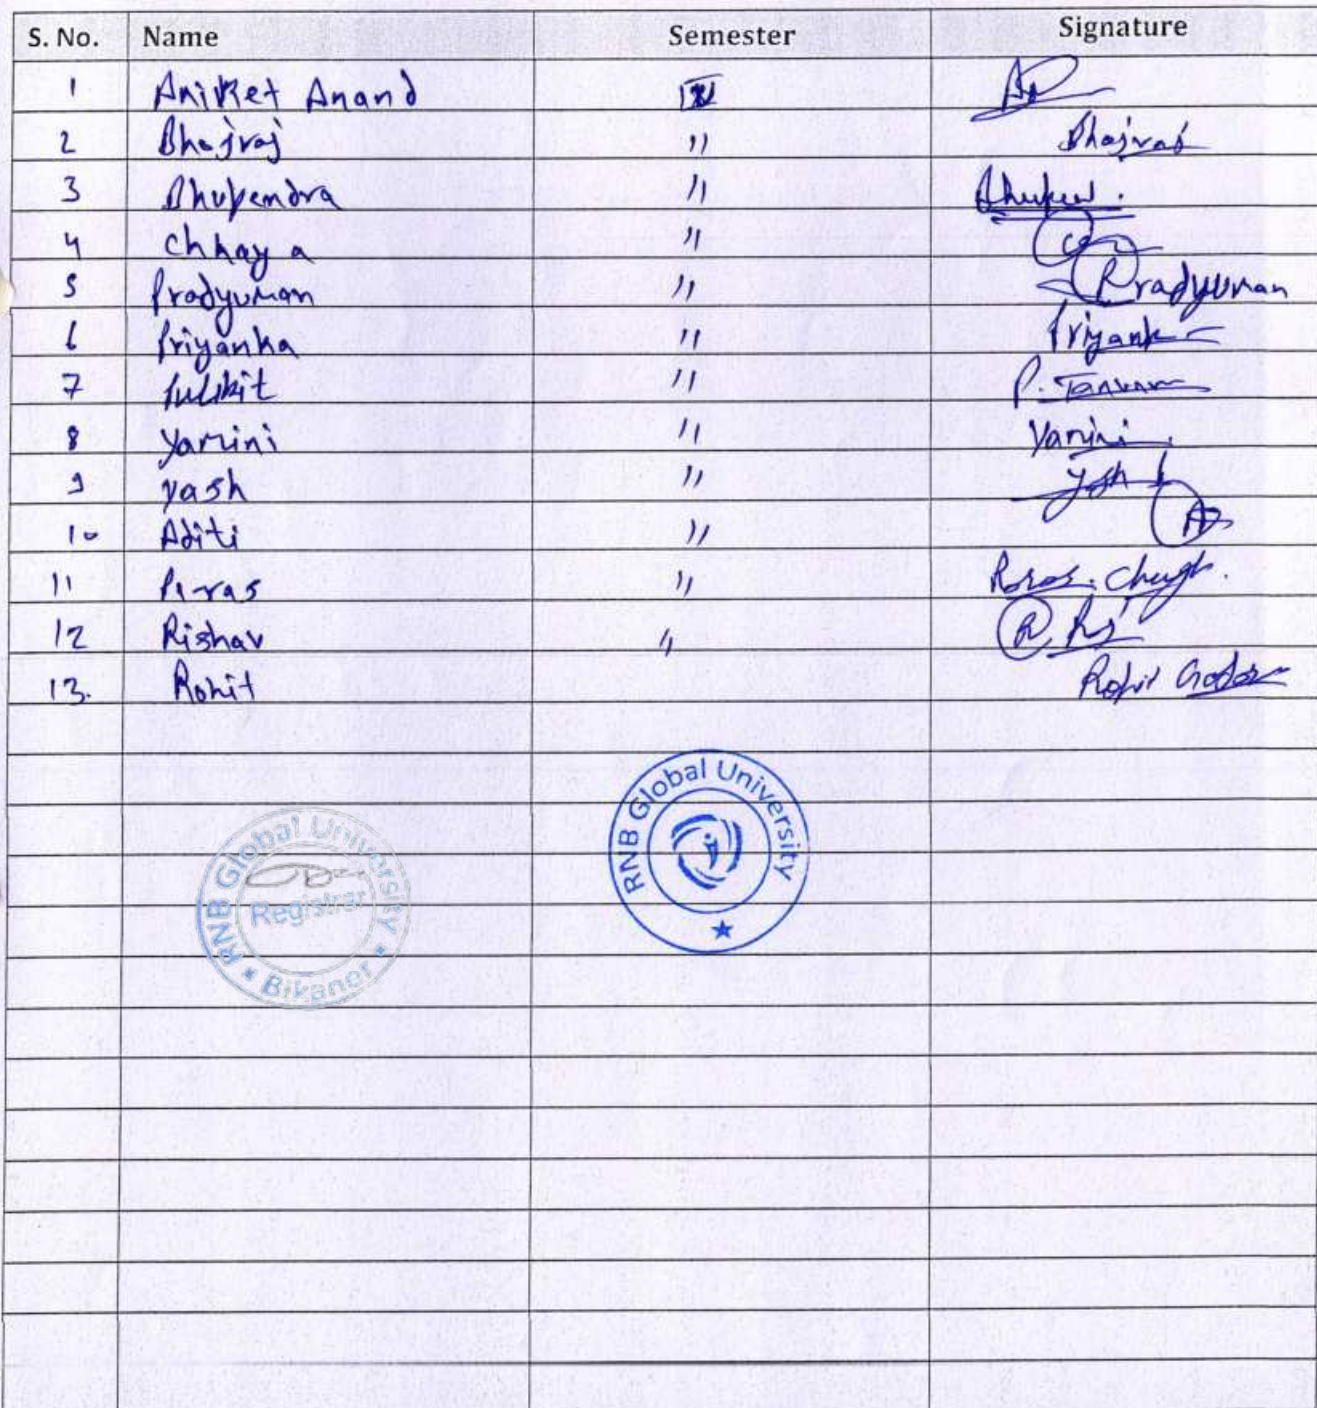 S. No. Name Semester Signature
1 Aniket Anand IV
2 Bhojraj " Bhojraj
3 Bhupendra "
4 Chhaya "
5 Pradyuman " Pradyuman
6 Priyanka " Priyanka
7 Pulkit " P.
8 Yamini " Yamini
9 Yash " Yash
10 Aditi " A
11 Paras " Paras Chugh.
12 Rishav " R
13. Rohit Rohit
RNB Global University
RNB Global University
Registrar
Bikaner